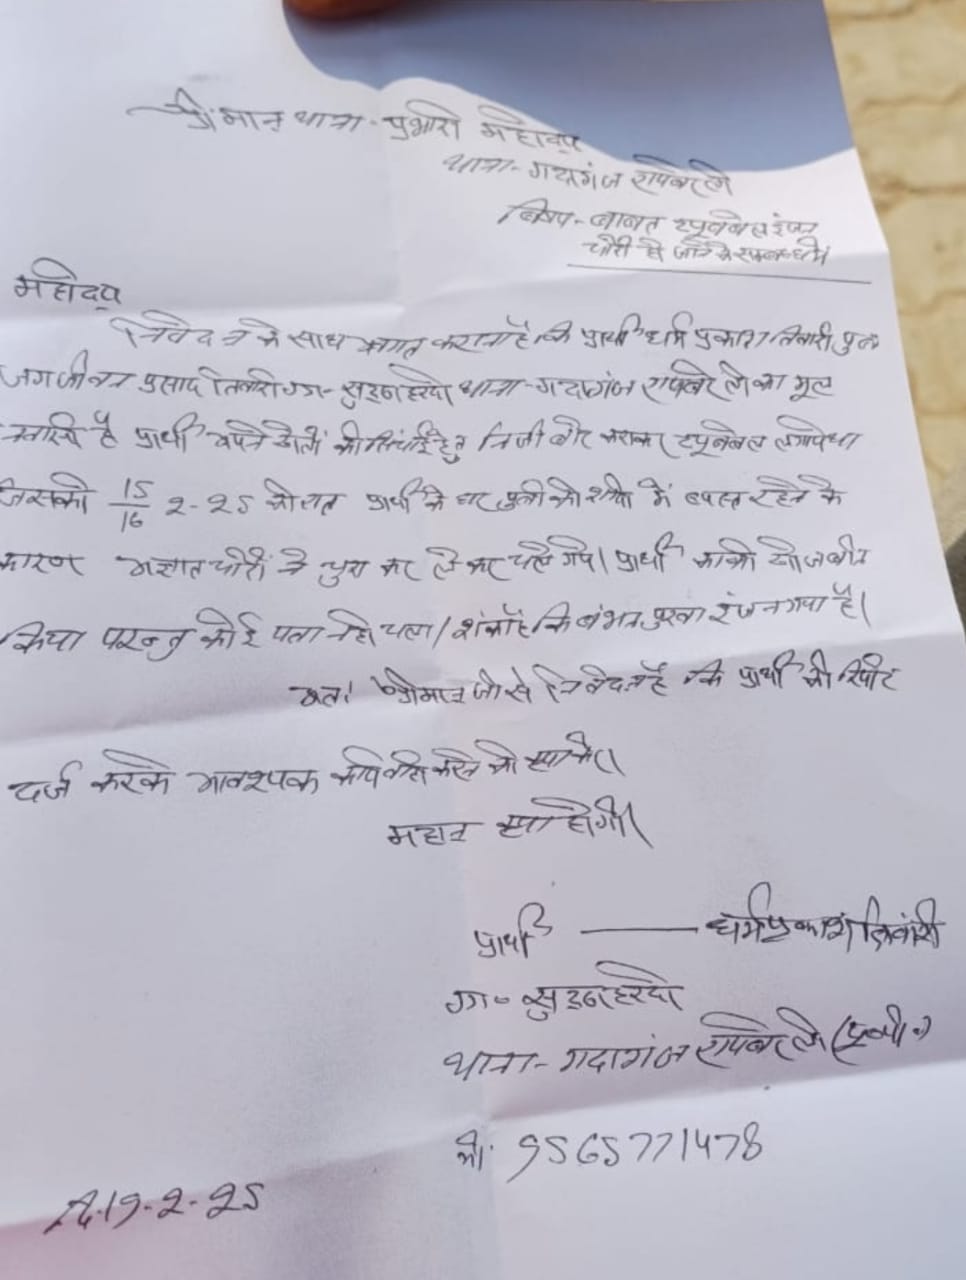 श्रीमान थाना-प्रभारी महोदय
थाना-गदागंज रायबरेली
विषय-बाबत ट्यूबवेल इंजन
चोरी हो जाने के सम्बन्ध में
महोदय
निवेदन के साथ अवगत कराना है कि प्रार्थी धर्म प्रकाश तिवारी पुत्र
जगजीवन प्रसाद तिवारी ग्रा- थाना-गदागंज रायबरेली का मूल
निवासी है प्रार्थी अपने खेतों की सिंचाई हेतु निजी बोर कराकर ट्यूबवेल लगाये था
जिसको 15/16 2-25 की रात प्रार्थी के घर पुत्री की शादी में व्यस्त रहने के
कारण अज्ञात चोरों ने चुरा कर ले कर चले गये। प्रार्थी काफी खोजबीन
किया परन्तु कोई पता नही चला। शंका है कि पुरवा इंजन गया है।
अतः श्रीमान जी से निवेदन है कि प्रार्थी की रिपोर्ट
दर्ज करके आवश्यक कार्यवाही करने की कृपा करें।
महान कृपा होगी।
प्रार्थी — धर्मप्रकाश तिवारी
ग्रा-
थाना-गदागंज रायबरेली (यू०पी०)
मो. 9565771478
दि. 19-2-25